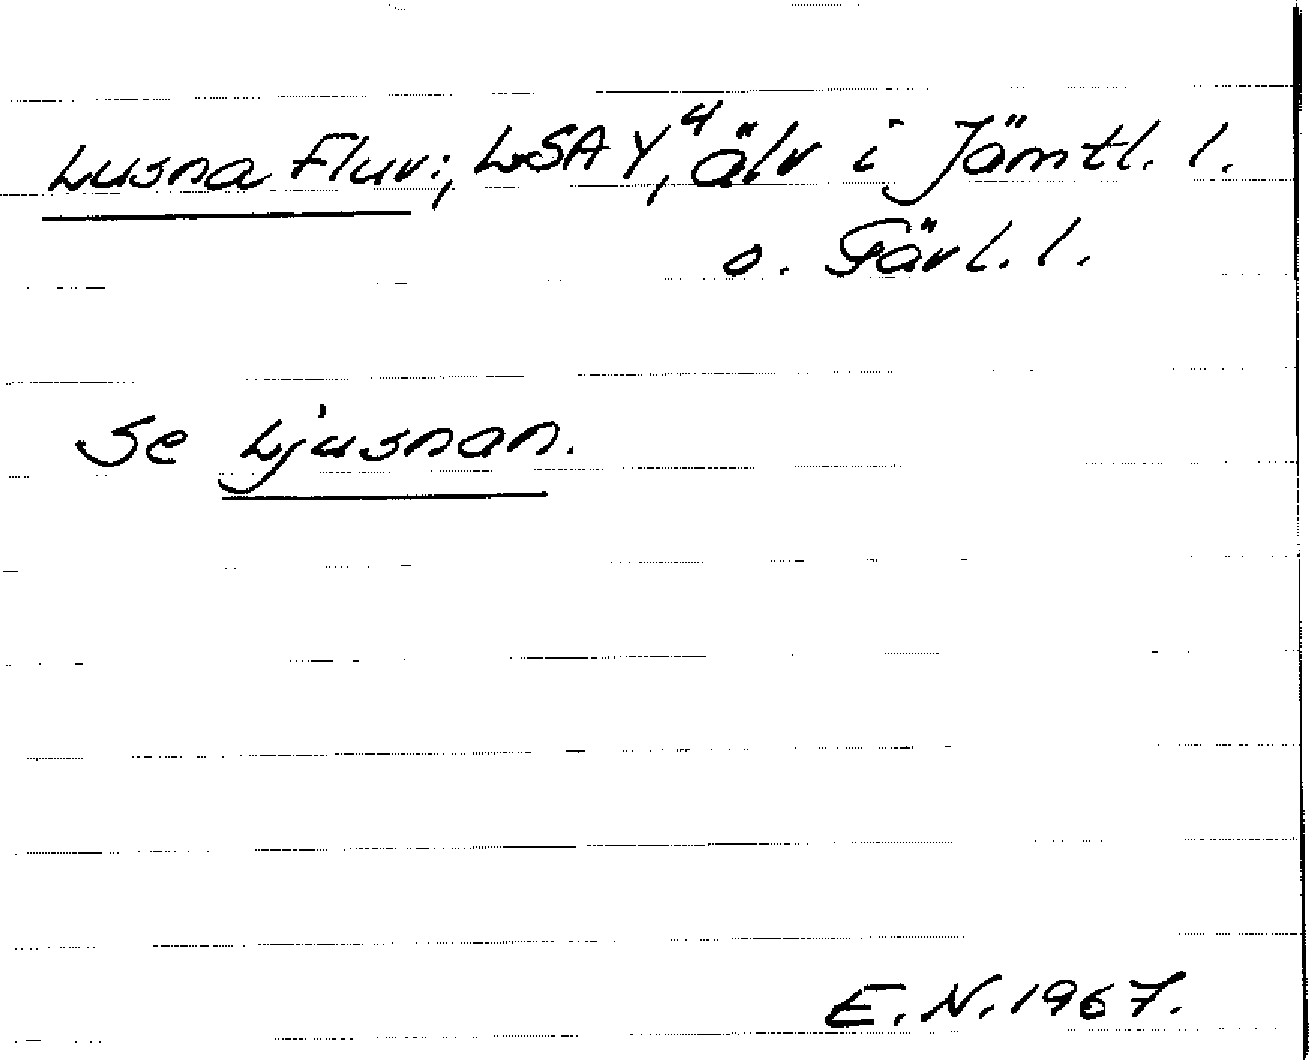 Lusna Fluv:, LSA Y,⁴ älv i Jämtl. l.
o. Gävl. l.
Se Ljusnan.
E.N. 1967.